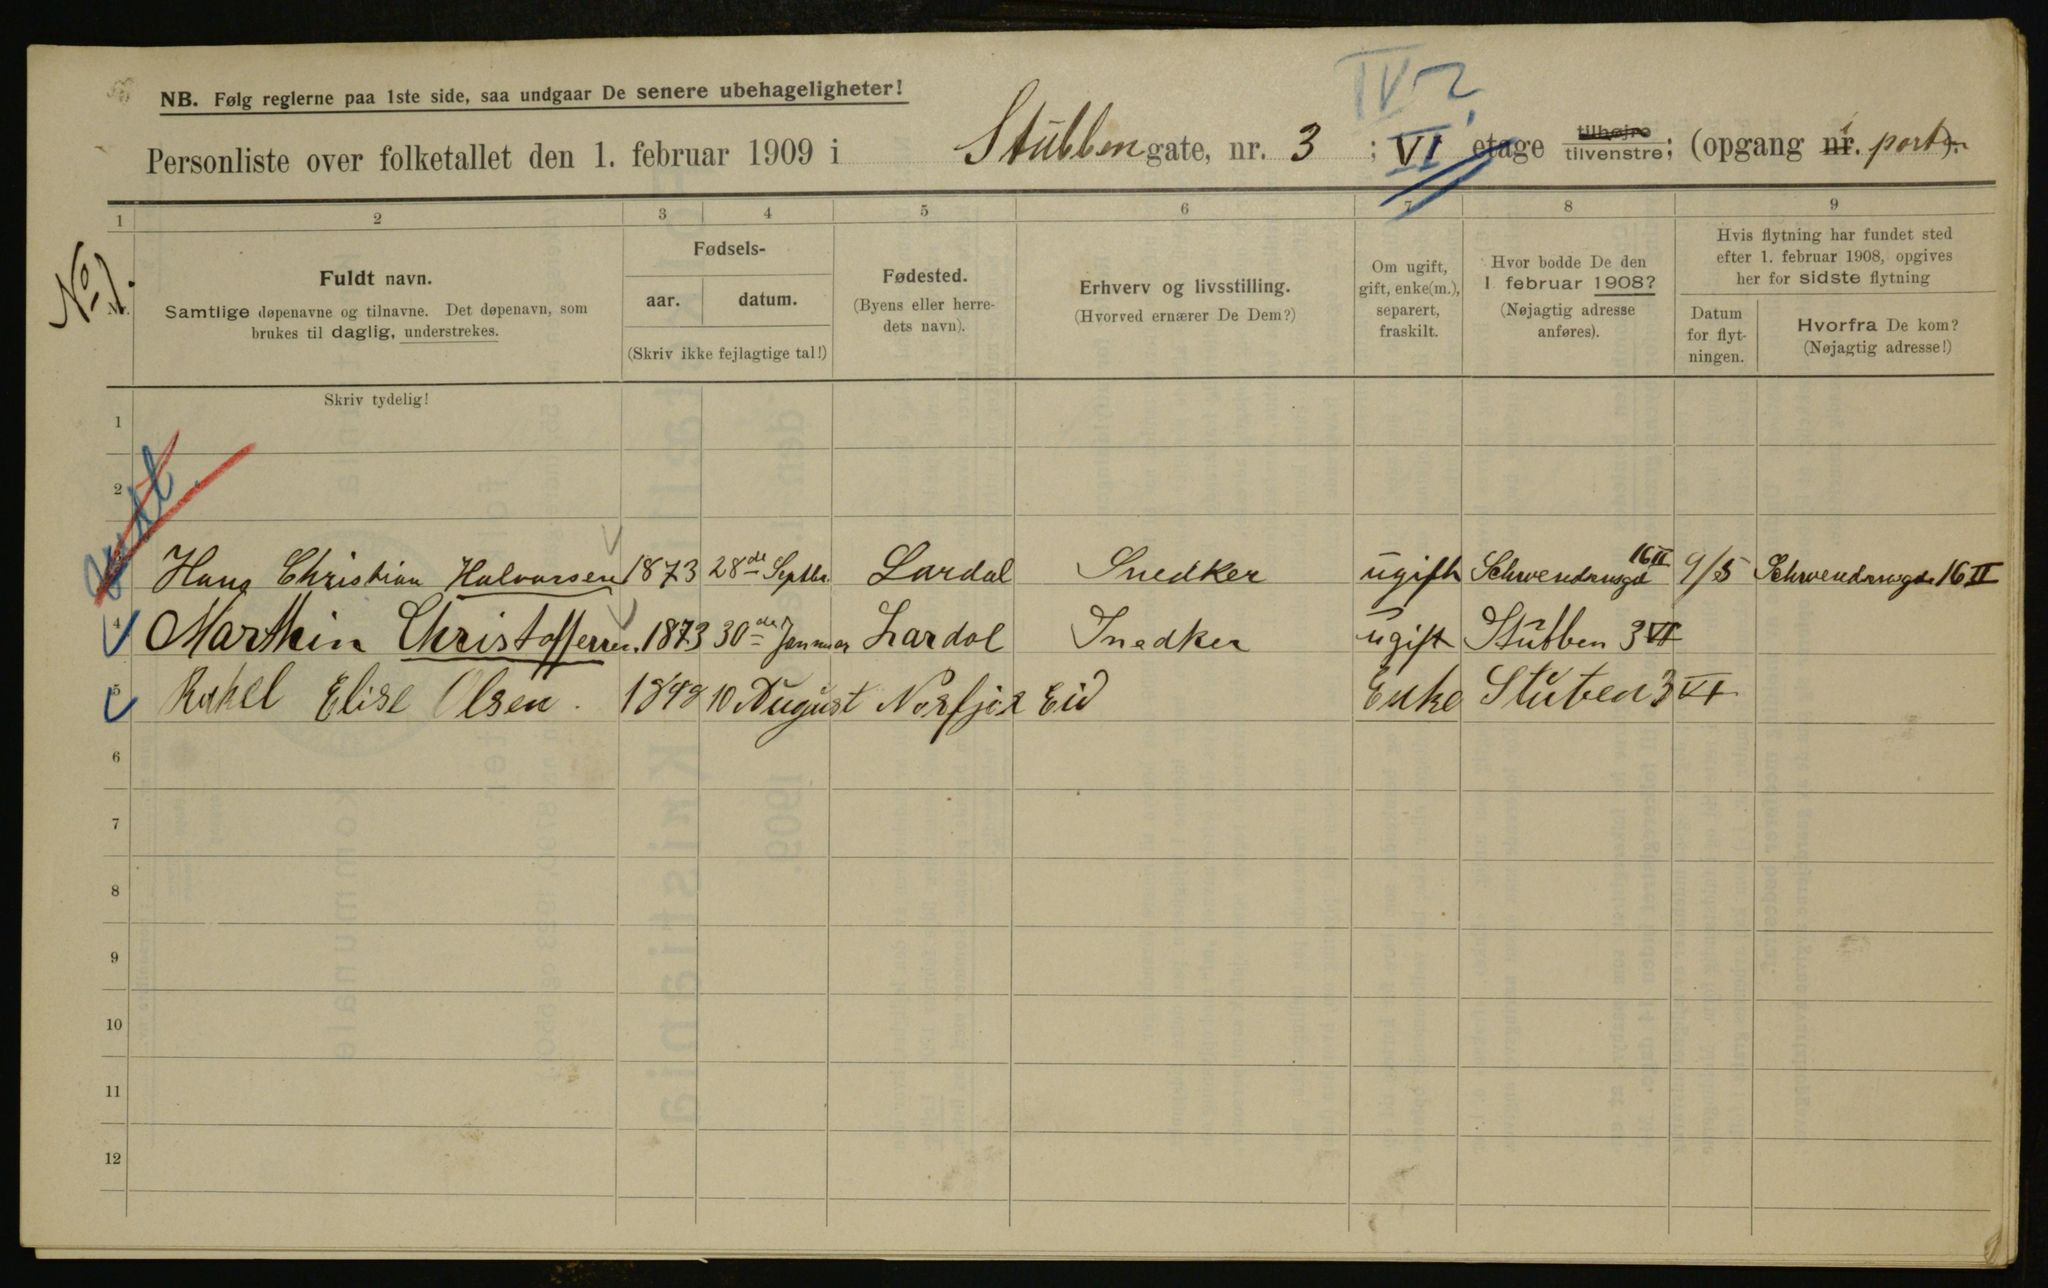 IV ?
NB. Følg reglerne paa 1ste side, saa undgaar De senere ubehageligheter!
Personliste over folketallet den 1. februar 1909 i Stubben gate, nr. 3 ; VI etage tilhøjre tilvenstre; (opgang nr. i porten).
1 2 3 4 5 6 7 8 9
No 1.
Nr.
Fuldt navn.
Samtlige døpenavne og tilnavne. Det døpenavn, som
brukes til daglig, understrekes.
Fødsels-
aar. datum.
(Skriv ikke fejlagtige tal!)
Fødested.
(Byens eller herre-
dets navn).
Erhverv og livsstilling.
(Hvorved ernærer De Dem?)
Om ugift,
gift, enke(m.),
separert,
fraskilt.
Hvor bodde De den
1. februar 1908?
(Nøjagtig adresse
anføres).
Hvis flytning har fundet sted
efter 1. februar 1908, opgives
her for sidste flytning
Datum
for flyt-
ningen.
Hvorfra De kom?
(Nøjagtig adresse!)
Skriv tydelig!
1
2
3 Hans Christian Halvorsen 1873 28de Septbr. Lardal Snedker ugift Schwendsensgd 16 II 9/5 Schwendsensgde 16 II
4 Marthin Christoffersen. 1873 30de Januar Lardal Snedker ugift Stubben 3 VI
5 Rakel Elise Olsen. 1848 10 August Norfjor Eid Enke Stuben 3 VI
6
7
8
9
10
11
12